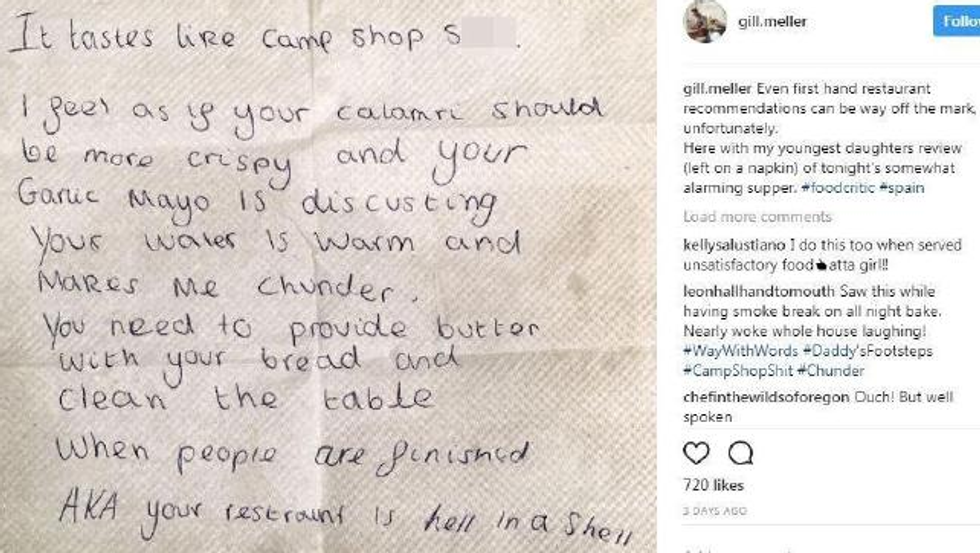 It tastes like camp shop S
I feel as if your calamri should
be more crispy and your
Garlic Mayo is discusting
Your water is warm and
Makes me chunder.
You need to provide butter
with your bread and
clean the table
When people are finished
AKA your restraunt is hell in a shell
gill.meller
Follow
gill.meller Even first hand restaurant
recommendations can be way off the mark,
unfortunately.
Here with my youngest daughters review
(left on a napkin) of tonight's somewhat
alarming supper. #foodcritic #spain
Load more comments
kellysalustiano I do this too when served
unsatisfactory food atta girl!!
leonhallhandtomouth Saw this while
having smoke break on all night bake.
Nearly woke whole house laughing!
#WayWithWords #Daddy'sFootsteps
#CampShopShit #Chunder
chefinthewildsoforegon Ouch! But well
spoken
720 likes
3 DAYS AGO